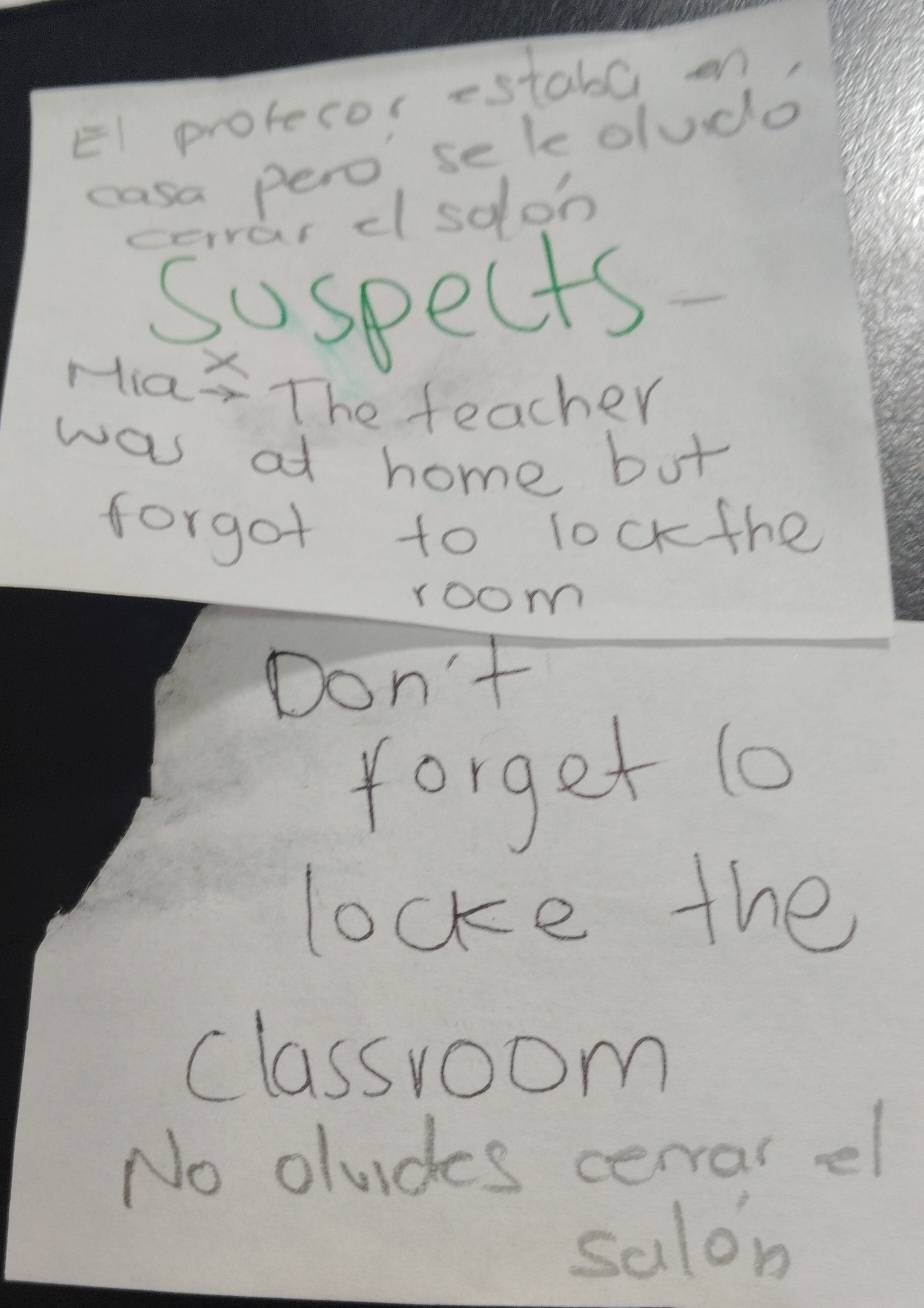 El profecor estaba en
casa pero se le olvidó
cerrar el salón
Suspects -
Mia x → The teacher
was at home but
forgot to lock the
room
Don't
forget to
locke the
classroom
No olvides cerrar el
salón